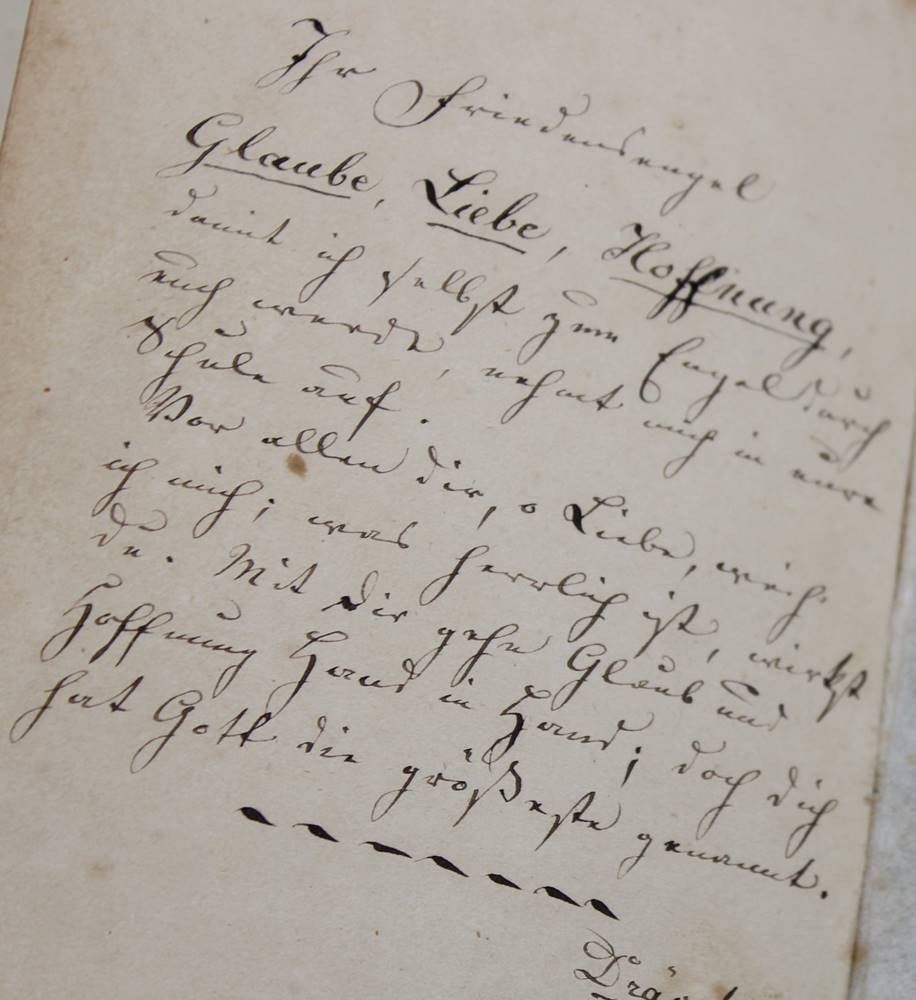 Ihr Friedensengel
Glaube, Liebe, Hoffnung,
damit ich selbst zum Engel durch
euch werde, nehmt mich in eure
Schule auf.
Vor allen dir, o Liebe, weih'
ich mich; was herrlich ist, wirkst
du. Mit dir gehn Glaub und
Hoffnung Hand in Hand; doch dich
hat Gott die größeste genannt.